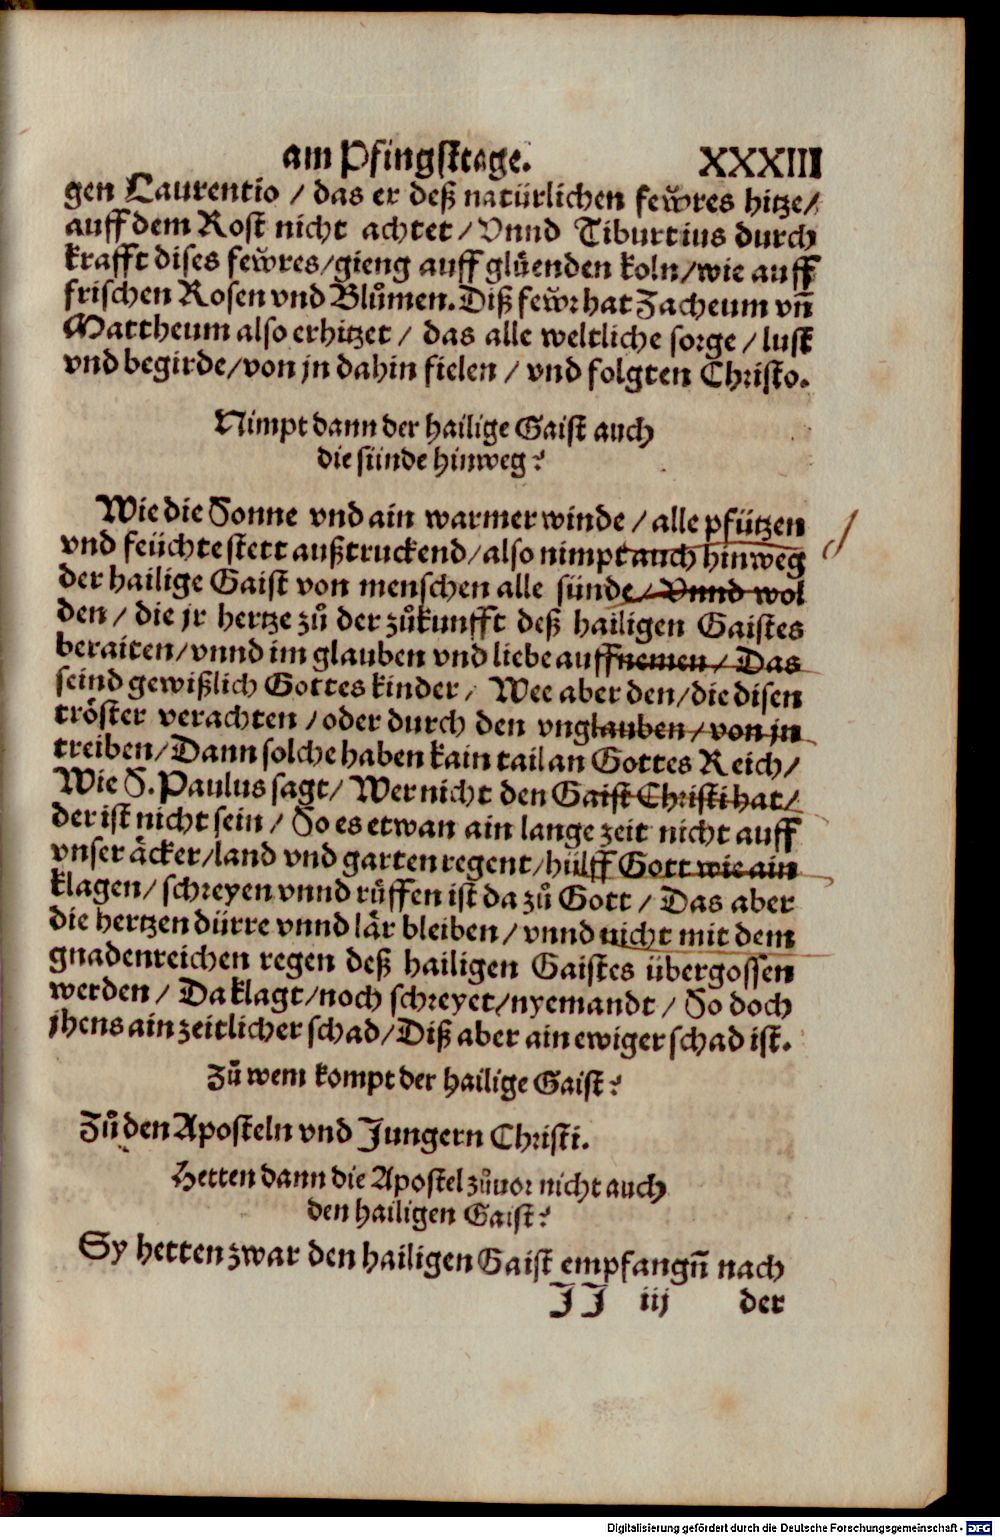 am Pfingsttage. XXXIII
gen Laurentio / das er deß natürlichen fewͤres hitze /
auff dem Rost nicht achtet / Vnnd Tiburtius durch
krafft dises fewͤres / gieng auff gluͤenden koln / wie auff
frischen Rosen vnd Bluͦmen. Diß fewͤr hat Zacheum vñ
Mattheum also erhitzet / das alle weltliche sorge / lust
vnd begirde / von jn dahin fielen / vnd folgten Christo.
Nimpt dann der hailige Gaist auch
die sünde hinweg?
Wie die Sonne vnd ain warmer winde / alle pfützen
vnd feüchte stett außtruckend / also nimpt auch hinweg
der hailige Gaist von menschen alle sünde / Vnnd wol
den / die jr hertze zuͦ der zuͦkunfft deß hailigen Gaistes
beraiten / vnnd im glauben vnd liebe auffnemen / Das
seind gewißlich Gottes kinder / Wee aber den / die disen
tröster verachten / oder durch den vnglauben / von jn
treiben / Dann solche haben kain tail an Gottes Reich /
Wie S. Paulus sagt / Wer nicht den Gaist Christi hat /
der ist nicht sein / So es etwan ain lange zeit nicht auff
vnser äcker / land vnd garten regent / hülff Gott wie ain
klagen / schreyen vnnd ruͤffen ist da zuͦ Gott / Das aber
die hertzen dürre vnnd lär bleiben / vnnd nicht mit dem
gnadenreichen regen deß hailigen Gaistes übergossen
werden / Da klagt / noch schreyet / nyemandt / So doch
jhens ain zeitlicher schad / Diß aber ain ewiger schad ist.
Zuͦ wem kompt der hailige Gaist?
Zuͦ den Aposteln vnd Jungern Christi.
Hetten dann die Apostel zuͦuor nicht auch
den hailigen Gaist?
Sy hetten zwar den hailigen Gaist empfangñ nach
JJ iij der
Digitalisierung gefördert durch die Deutsche Forschungsgemeinschaft - DFG